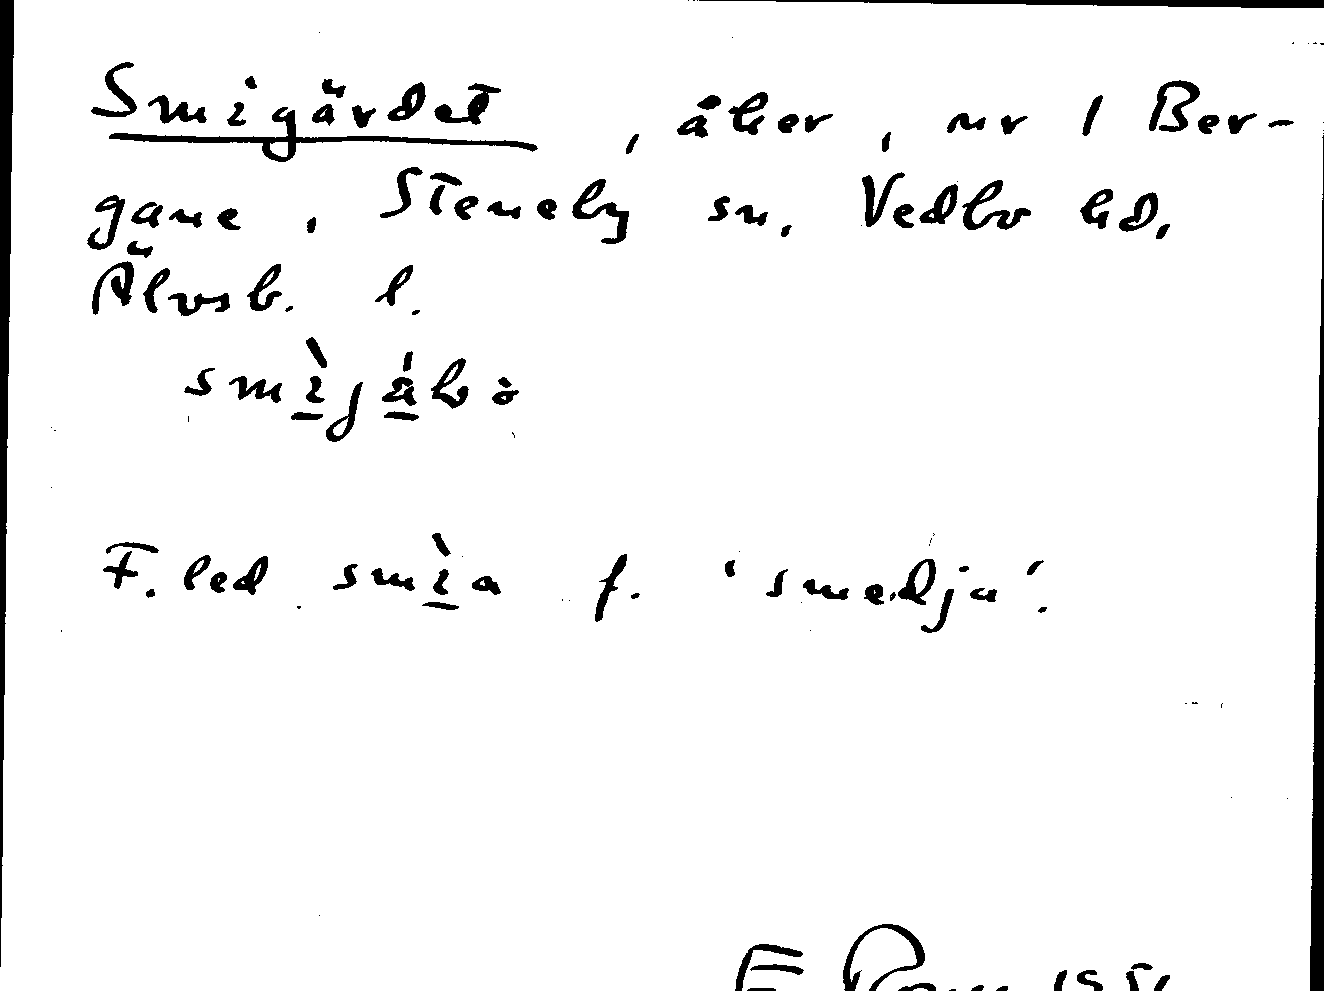 Smigärdet, åker, nr 1 Ber-
gane, Steneby sn, Vedbo hd,
Älvsb. l.
F. led smìa f. 'smedja'.
E